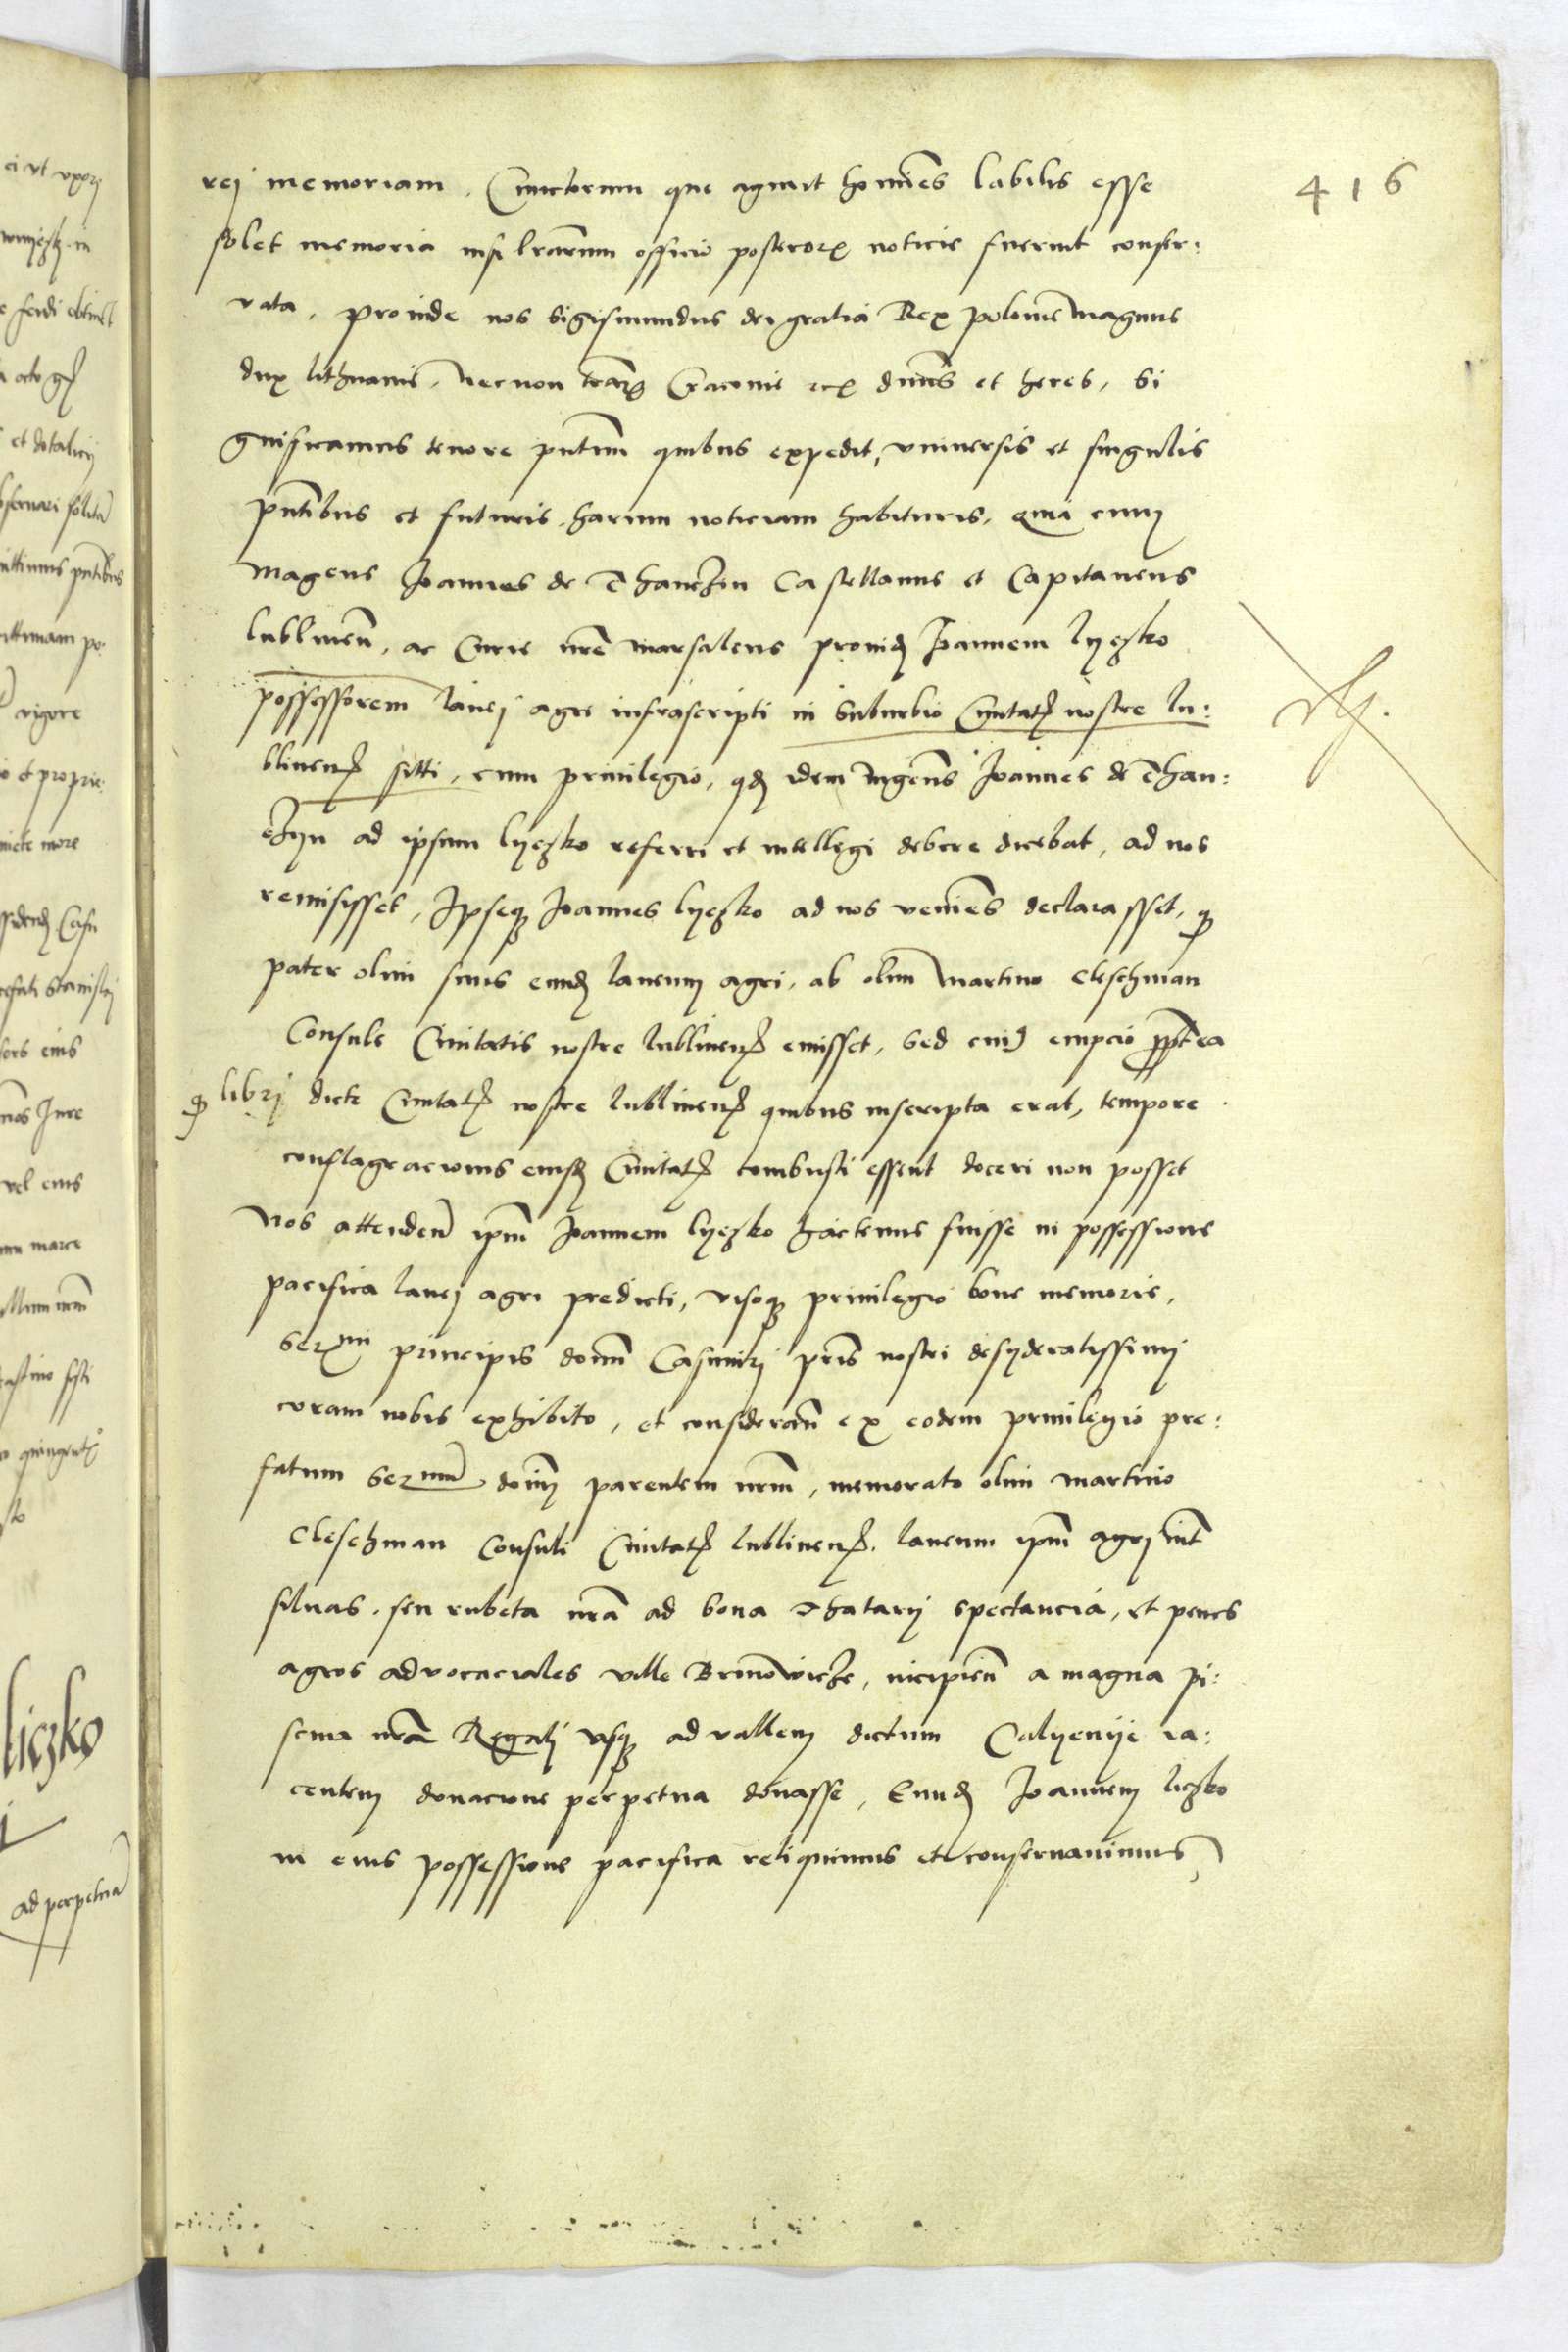 416
rej memoriam. Cunctorum que agunt homines labilis esse
solet memoria nisi lrarum officio posteror noticie fuerint conser:
vata, proinde nos Sigismundus dei gratia Rex polonie magnus
dux lithuanie, necnon trar Cracovie etc dnus et heres, Si
gnificamus tenore pntium quibus expedit, universis et singulis
pntibus et futuris, harum noticiam habituris. quia cum
magcus Joannes de Thanczin Castellanus et Capitaneus
lublinen, ac Curie nre marsalcus provid Joannem lyeszko
possessorem lanej agri infrascripti in suburbio Civitat nostre lu:
blinen sitti, cum privilegio, qd idem Magcus Joannes de Than:
czyn ad ipsum lyeszko referri et intelligi debere dicebat, ad nos
remisisset, Ipseq Joannes lyeszko ad nos veniens declarasset, q
pater olim suus eund laneum agri, ab olim martino cleschman
Consule Civitatis nostre lublinen emisset, Sed eius empcio ppterea
q libri dicte Civitat nostre lublinen quibus inscripta erat, tempore
conflagracionis eiusd Civitat combusti essent doceri non posset
Nos attenden ipm Joannem lyeszko hactenus fuisse in possessione
pacifica lanej agri predicti, visoq privilegio bone memorie,
Ser mi principis domini Casimiri pris nostri desyderatissimi
coram nobis exhibito, et consideran ex eodem privilegio pre:
fatum Ser mum dom parentem nrm, memorato olim martino
Cleschman Consuli Civitat lublinen. laneum ipm agri int
silvas, seu rubeta nra ad bona Thatary spectancia, et penes
agros advocaciales ville Bronowicze, incipien a magna pi:
scina nra Regali usq ad vallem dictum Calyenije ia:
centem donacione perpetua donasse, Eund Joannem liczko
in eius possessione pacifica reliquimus et conservavimus,
liczko
ad perpetua